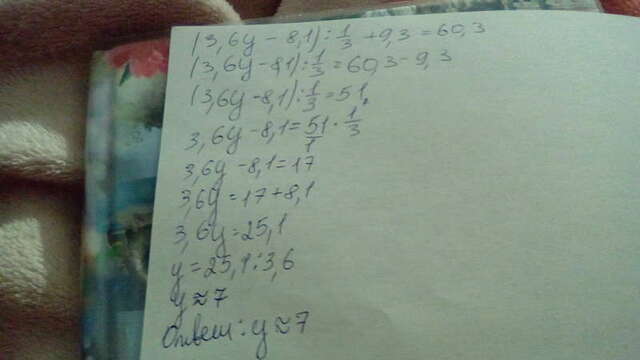 (3,6y - 8,1) : 1/3 + 9,3 = 60,3
(3,6y - 8,1) : 1/3 = 60,3 - 9,3
(3,6y - 8,1) : 1/3 = 51
3,6y - 8,1 = 51/1 · 1/3
3,6y - 8,1 = 17
3,6y = 17 + 8,1
3,6y = 25,1
y = 25,1 : 3,6
y ≈ 7
Ответ: y ≈ 7